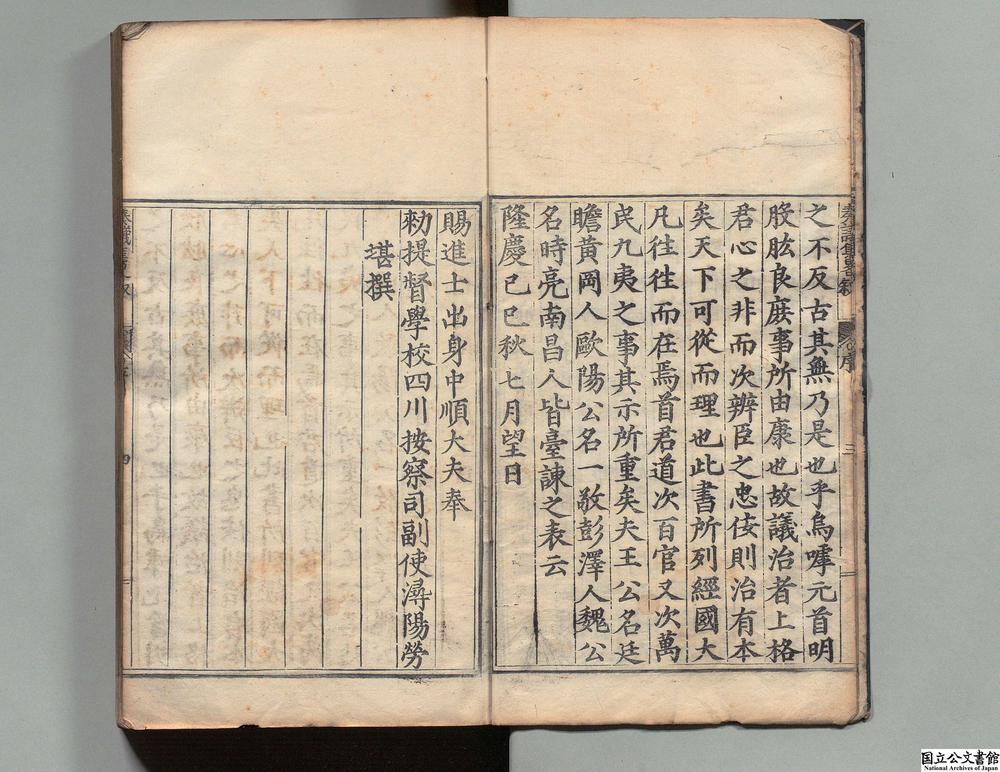 之不反古其無乃是也乎烏嘑元首明
股肱良庶事所由康也故議治者上格
君心之非而次辨臣之忠佞則治有本
矣天下可從而理也此書所列經國大
凡往往而在焉首君道次百官又次萬
民九夷之事其示所重矣夫王公名廷
瞻黃岡人歐陽公名一敬彭澤人魏公
名時亮南昌人皆臺諫之表云
隆慶己巳秋七月望日
三
賜進士出身中順大夫奉
勑提督學校四川按察司副使潯陽勞
堪撰
四
国立公文書館
National Archives of Japan